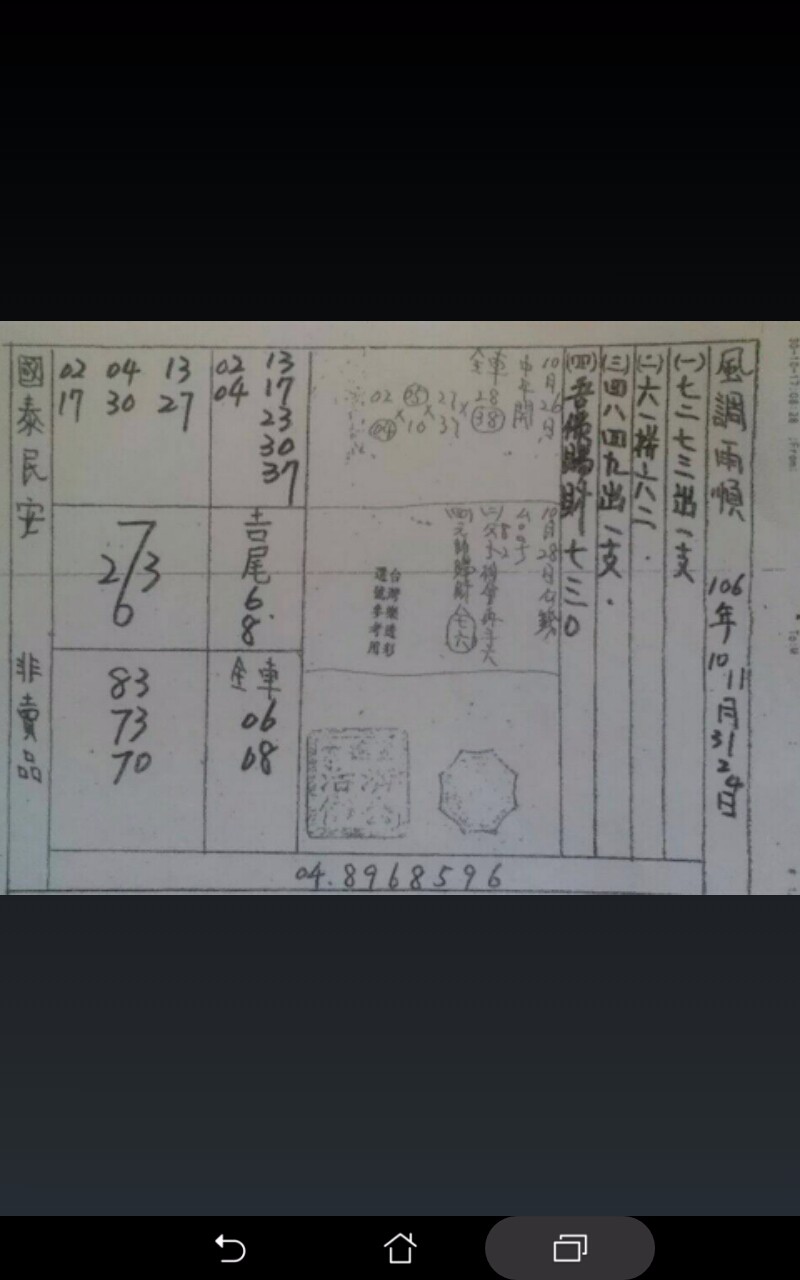 風調雨順 106年10 11月31 24日
(一)七二七三出一支
(二)六一拚六二.
(三)四八四九出一支.
(四)吾佛賜財七三0
10月26日
開
全車
28
38
02 05 27
04 10 37
10月28日
(四)元帥賜財 七六
台灣樂透彩
選號參考用
02 13
04 17
23
30
37
吉尾 6. 8.
全車
06
08
02 04 13
17 30 27
7
2/3
6
83
73
70
國泰民安 非賣品
04.8968596